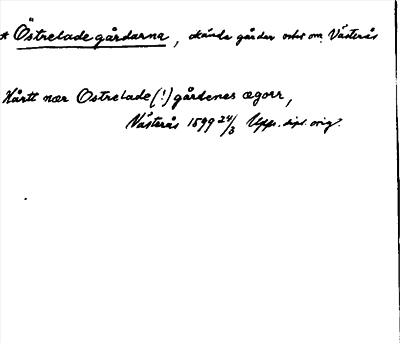 * Östrelade gårdarna, okända gårdar ostr om Västerås
Hårtt nær Ostrelade (!) gårdenes ægorr,
Västerås 1599 24/3 Upps. dipl. orig.